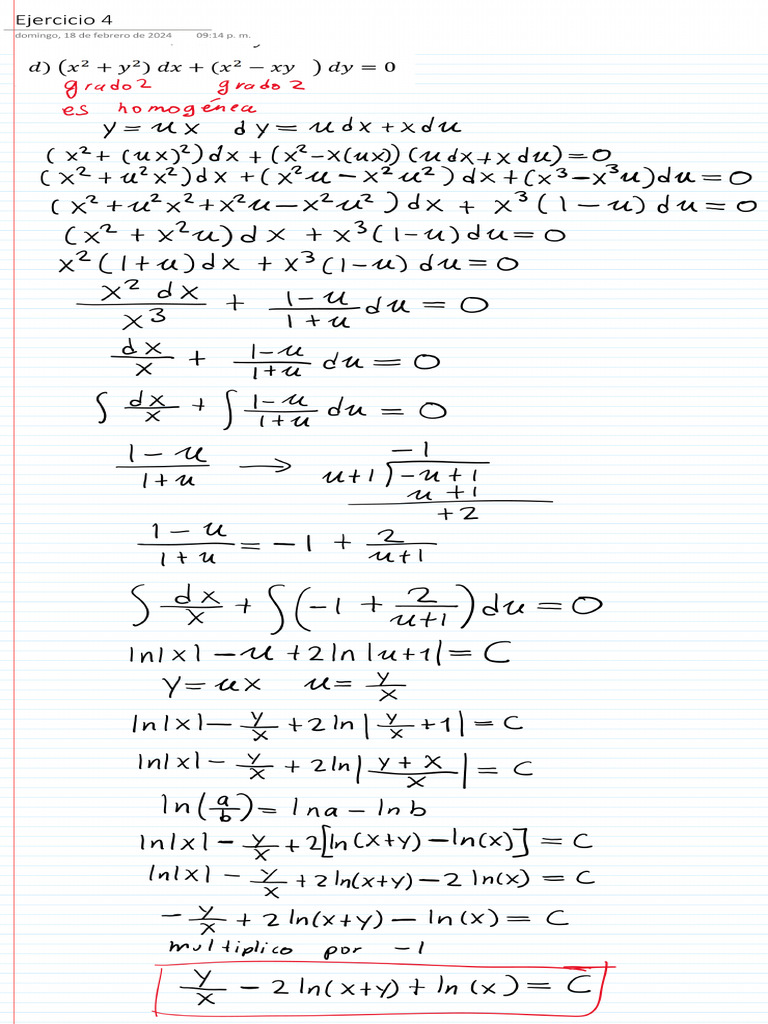 Ejercicio 4
domingo, 18 de febrero de 2024 09:14 p. m.
d) (x² + y²) dx + (x² − xy ) dy = 0
grado 2 grado 2
es homogénea
y = ux dy = udx + xdu
(x² + (ux)²)dx + (x² − x(ux))(udx + xdu) = 0
(x² + u²x²)dx + (x²u − x²u²)dx + (x³ − x³u)du = 0
(x² + u²x² + x²u − x²u²)dx + x³(1 − u)du = 0
(x² + x²u)dx + x³(1−u)du = 0
x²(1+u)dx + x³(1−u)du = 0
x² dx / x³ + (1−u)/(1+u) du = 0
dx/x + (1−u)/(1+u) du = 0
∫ dx/x + ∫ (1−u)/(1+u) du = 0
(1−u)/(1+u) → −1
u+1 ) −u + 1
u + 1
+2
(1−u)/(1+u) = −1 + 2/(u+1)
∫ dx/x + ∫ (−1 + 2/(u+1)) du = 0
ln|x| − u + 2 ln|u+1| = C
y = ux u = y/x
ln|x| − y/x + 2 ln|y/x + 1| = C
ln|x| − y/x + 2 ln|(y + x)/x| = C
ln(a/b) = ln a − ln b
ln|x| − y/x + 2[ln(x+y) − ln(x)] = C
ln|x| − y/x + 2 ln(x+y) − 2 ln(x) = C
− y/x + 2 ln(x+y) − ln(x) = C
multiplico por −1
y/x − 2 ln(x+y) + ln(x) = C̅